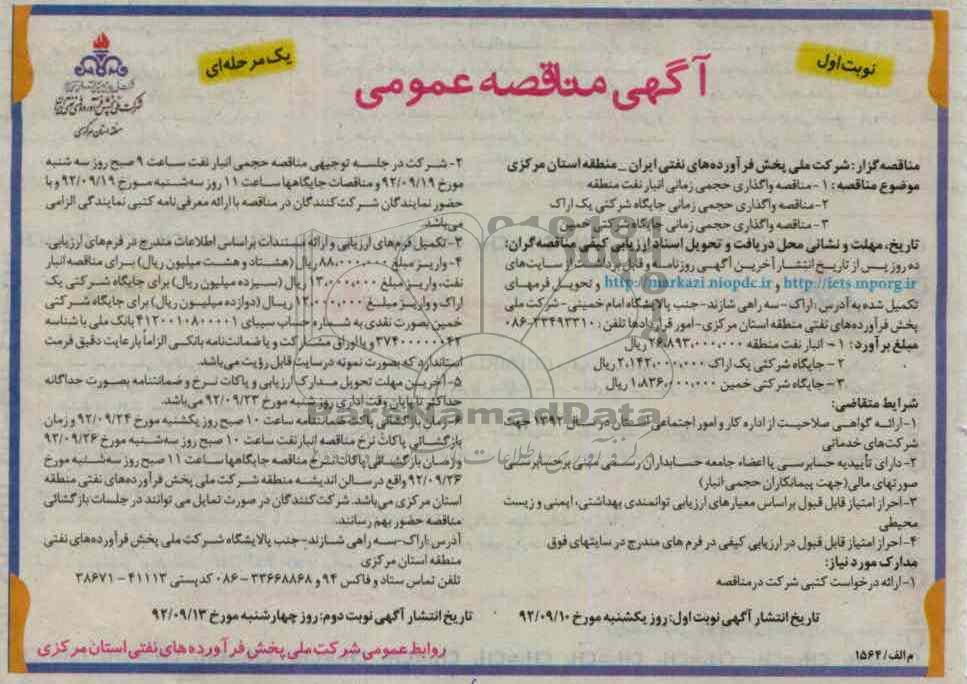 نوبت اول
آگهی مناقصه عمومی
یک مرحله‌ای
شرکت ملی پخش فرآورده‌های نفتی ایران
منطقه استان مرکزی
مناقصه‌گزار: شرکت ملی پخش فرآورده‌های نفتی ایران _ منطقه استان مرکزی
موضوع مناقصه: ۱- مناقصه واگذاری حجمی زمانی انبار نفت منطقه
۲- مناقصه واگذاری حجمی زمانی جایگاه شرکتی یک اراک
۳- مناقصه واگذاری حجمی زمانی جایگاه شرکتی خمین
تاریخ، مهلت و نشانی محل دریافت و تحویل اسناد ارزیابی کیفی مناقصه‌گران:
ده روز پس از تاریخ انتشار آخرین آگهی روزنامه و قابل دریافت از سایت‌های
http://iets.mporg.ir و http://markazi.niopdc.ir و تحویل فرمهای
تکمیل شده به آدرس: اراک- سه راهی شازند- جنب پالایشگاه امام خمینی- شرکت ملی
پخش فرآورده‌های نفتی منطقه استان مرکزی- امور قراردادها تلفن: ۳۳۴۹۳۳۱۰-۰۸۶
مبلغ برآورد: ۱- انبار نفت منطقه ۲۶،۸۹۳،۰۰۰،۰۰۰ ریال
۲- جایگاه شرکتی یک اراک ۲،۱۴۲،۰۰۰،۰۰۰ ریال
۳- جایگاه شرکتی خمین ۱،۸۳۶،۰۰۰،۰۰۰ ریال
شرایط متقاضی:
۱- ارائه گواهی صلاحیت از اداره کار و امور اجتماعی استان در سال ۱۳۹۲ جهت
شرکت‌های خدماتی
۲- دارای تأییدیه حسابرسی یا اعضاء جامعه حسابداران رسمی مبنی بر حسابرسی
صورتهای مالی (جهت پیمانکاران حجمی انبار)
۳- احراز امتیاز قابل قبول براساس معیارهای ارزیابی توانمندی بهداشتی، ایمنی و زیست
محیطی
۴- احراز امتیاز قابل قبول در ارزیابی کیفی در فرم های مندرج در سایتهای فوق
مدارک مورد نیاز:
۱- ارائه درخواست کتبی شرکت در مناقصه
۲- شرکت در جلسه توجیهی مناقصه حجمی انبار نفت ساعت ۹ صبح روز سه شنبه
مورخ ۹۲/۰۹/۱۹ و مناقصات جایگاهها ساعت ۱۱ روز سه‌شنبه مورخ ۹۲/۰۹/۱۹ و با
حضور نمایندگان شرکت‌کنندگان در مناقصه با ارائه معرفی‌نامه کتبی نمایندگی الزامی
می‌باشد.
۳- تکمیل فرم‌های ارزیابی و ارائه مستندات براساس اطلاعات مندرج در فرم‌های ارزیابی.
۴- واریز مبلغ ۸۸،۰۰۰،۰۰۰ ریال (هشتاد و هشت میلیون ریال) برای مناقصه انبار
نفت، واریز مبلغ ۱۳،۰۰۰،۰۰۰ ریال (سیزده میلیون ریال) برای جایگاه شرکتی یک
اراک و واریز مبلغ ۱۲،۰۰۰،۰۰۰ ریال (دوازده میلیون ریال) برای جایگاه شرکتی
خمین بصورت نقدی به شماره حساب سیبای ۴۱۲۰۰۱۰۸۰۰۰۰۱ بانک ملی با شناسه
۳۷۴۰۰۰۰۰۰۴۲ و یا اوراق مشارکت و یا ضمانت‌نامه بانکی الزاماً با رعایت دقیق فرمت
استاندارد که بصورت نمونه در سایت قابل رؤیت می‌باشد.
۵- آخرین مهلت تحویل مدارک ارزیابی و پاکات نرخ و ضمانتنامه بصورت جداگانه
حداکثر تا پایان وقت اداری روز شنبه مورخ ۹۲/۰۹/۲۳ می‌باشد.
۶- زمان بازگشائی پاکت ضمانتنامه ساعت ۱۰ صبح روز یکشنبه مورخ ۹۲/۰۹/۲۴ و زمان
بازگشائی پاکات نرخ مناقصه انبار نفت ساعت ۱۰ صبح روز سه‌شنبه مورخ ۹۲/۰۹/۲۶
و زمان بازگشائی پاکات نرخ مناقصه جایگاهها ساعت ۱۱ صبح روز سه‌شنبه مورخ
۹۲/۰۹/۲۶ واقع در سالن اندیشه منطقه شرکت ملی پخش فرآورده‌های نفتی منطقه
استان مرکزی می‌باشد. شرکت‌کنندگان در صورت تمایل می توانند در جلسات بازگشائی
مناقصه حضور بهم رسانند.
آدرس: اراک- سه راهی شازند- جنب پالایشگاه شرکت ملی پخش فرآورده‌های نفتی
منطقه استان مرکزی
تلفن تماس ستاد و فاکس ۹۴ و ۳۳۶۶۸۸۶۸-۰۸۶ کدپستی ۴۱۱۱۳-۳۸۶۷۱
تاریخ انتشار آگهی نوبت اول: روز یکشنبه مورخ ۹۲/۰۹/۱۰
تاریخ انتشار آگهی نوبت دوم: روز چهارشنبه مورخ ۹۲/۰۹/۱۳
م الف/۱۵۶۴
روابط عمومی شرکت ملی پخش فرآورده‌های نفتی استان مرکزی
ParsNamadData